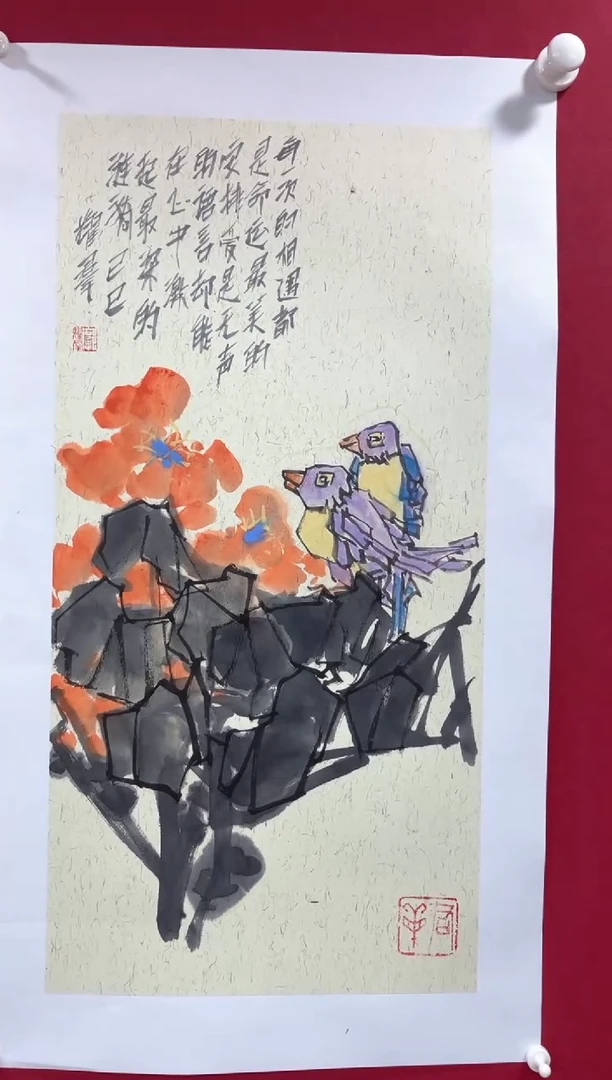 每一次的相遇都
是命运最美的
安排爱是无声
的语言却能
在心中激
起最深的
涟漪